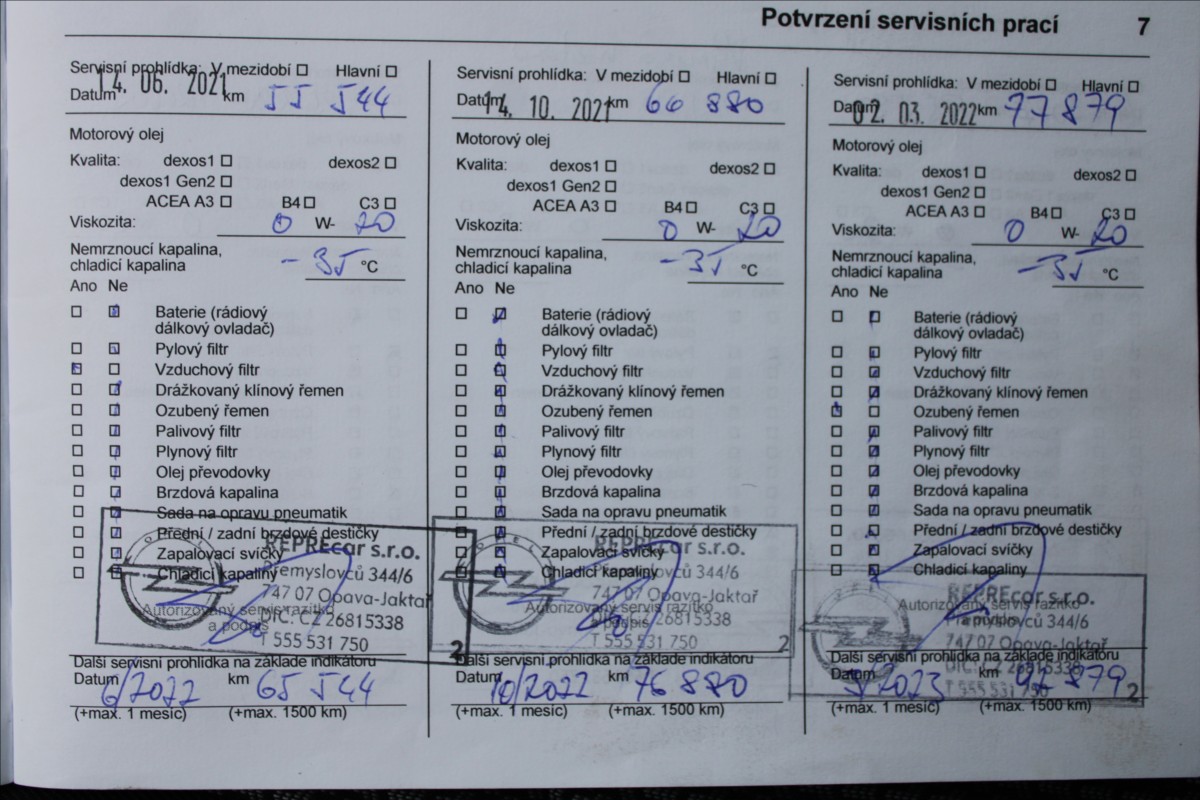 Potvrzení servisních prací 7
Servisní prohlídka: V mezidobí ☐ Hlavní ☐
Datum 14. 06. 2021 km 55 544
Motorový olej
Kvalita: dexos1 ☐ dexos2 ☐
dexos1 Gen2 ☐
ACEA A3 ☐ B4 ☐ C3 ☐
Viskozita: 0 W- 20
Nemrznoucí kapalina,
chladicí kapalina -35 °C
Ano Ne
Baterie (rádiový
dálkový ovladač)
Pylový filtr
Vzduchový filtr
Drážkovaný klínový řemen
Ozubený řemen
Palivový filtr
Plynový filtr
Olej převodovky
Brzdová kapalina
Sada na opravu pneumatik
Přední / zadní brzdové destičky
Zapalovací svíčky
Chladicí kapaliny
OPEL
REPREcar s.r.o.
Přemyslovců 344/6
747 07 Opava-Jaktař
DIČ: CZ 26815338
T 555 531 750
2
Autorizovaný servis razítko
a podpis
Další servisní prohlídka na základe indikátoru
Datum 6/2022 km 65 544
(+max. 1 mesíc) (+max. 1500 km)
Servisní prohlídka: V mezidobí ☐ Hlavní ☐
Datum 14. 10. 2021 km 66 880
Motorový olej
Kvalita: dexos1 ☐ dexos2 ☐
dexos1 Gen2 ☐
ACEA A3 ☐ B4 ☐ C3 ☐
Viskozita: 0 W- 20
Nemrznoucí kapalina,
chladicí kapalina -35 °C
Ano Ne
Baterie (rádiový
dálkový ovladač)
Pylový filtr
Vzduchový filtr
Drážkovaný klínový řemen
Ozubený řemen
Palivový filtr
Plynový filtr
Olej převodovky
Brzdová kapalina
Sada na opravu pneumatik
Přední / zadní brzdové destičky
Zapalovací svíčky
Chladicí kapaliny
OPEL
REPREcar s.r.o.
Přemyslovců 344/6
747 07 Opava-Jaktař
DIČ: CZ 26815338
T 555 531 750
2
Autorizovaný servis razítko
a podpis
Další servisní prohlídka na základe indikátoru
Datum 10/2022 km 76 880
(+max. 1 mesíc) (+max. 1500 km)
Servisní prohlídka: V mezidobí ☐ Hlavní ☐
Datum 02. 03. 2022 km 77 879
Motorový olej
Kvalita: dexos1 ☐ dexos2 ☐
dexos1 Gen2 ☐
ACEA A3 ☐ B4 ☐ C3 ☐
Viskozita: 0 W- 20
Nemrznoucí kapalina,
chladicí kapalina -35 °C
Ano Ne
Baterie (rádiový
dálkový ovladač)
Pylový filtr
Vzduchový filtr
Drážkovaný klínový řemen
Ozubený řemen
Palivový filtr
Plynový filtr
Olej převodovky
Brzdová kapalina
Sada na opravu pneumatik
Přední / zadní brzdové destičky
Zapalovací svíčky
Chladicí kapaliny
REPREcar s.r.o.
Autorizovaný servis razítko
Přemyslovců 344/6
747 07 Opava-Jaktař
DIČ: CZ 26815338
T 555 531 750
2
Další servisní prohlídka na základe indikátoru
Datum 3/2023 km 879
(+max. 1 mesíc) (+max. 1500 km)